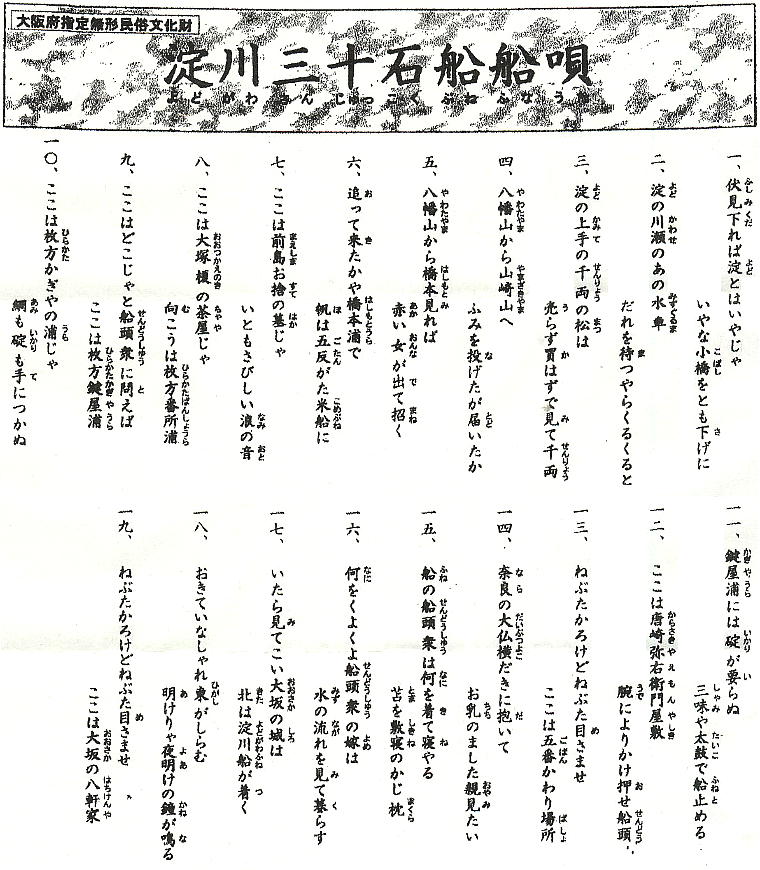 大阪府指定無形民俗文化財
淀川三十石船船唄
よどがわさんじゅっこくぶねふなうた
一、伏見下れば淀とはいやじゃ
いやな小橋をとも下げに
二、淀の川瀬のあの水車
だれを待つやらくるくると
三、淀の上手の千両の松は
売らず買はずで見て千両
四、八幡山から山崎山へ
ふみを投げたが届いたか
五、八幡山から橋本見れば
赤い女が出て招く
六、追って来たかや橋本浦で
帆は五反がた米船に
七、ここは前島お捨の墓じゃ
いともさびしい浪の音
八、ここは大塚榎の茶屋じゃ
向こうは枚方番所浦
九、ここはどこじゃと船頭衆に問えば
ここは枚方鍵屋浦
一〇、ここは枚方かぎやの浦じゃ
綱も碇も手につかぬ
一一、鍵屋浦には碇が要らぬ
三味や太鼓で船止める
一二、ここは唐崎弥右衛門屋敷
腕によりかけ押せ船頭
一三、ねぶたかろけどねぶた目さませ
ここは五番かわり場所
一四、奈良の大仏横だきに抱いて
お乳のました親見たい
一五、船の船頭衆は何を着て寝やる
苫を敷寝のかじ枕
一六、何をくよくよ船頭衆の嫁は
水の流れを見て暮らす
一七、いたら見てこい大坂の城は
北は淀川船が着く
一八、おきていなしゃれ東がしらむ
明けりゃ夜明けの鐘が鳴る
一九、ねぶたかろけどねぶた目さませ
ここは大坂の八軒家